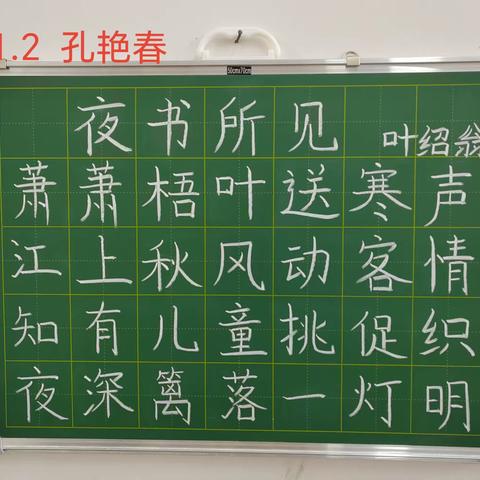 1.2 孔艳春
50cmx70cm
夜书所见
叶绍翁
萧萧梧叶送寒声
江上秋风动客情
知有儿童挑促织
夜深篱落一灯明